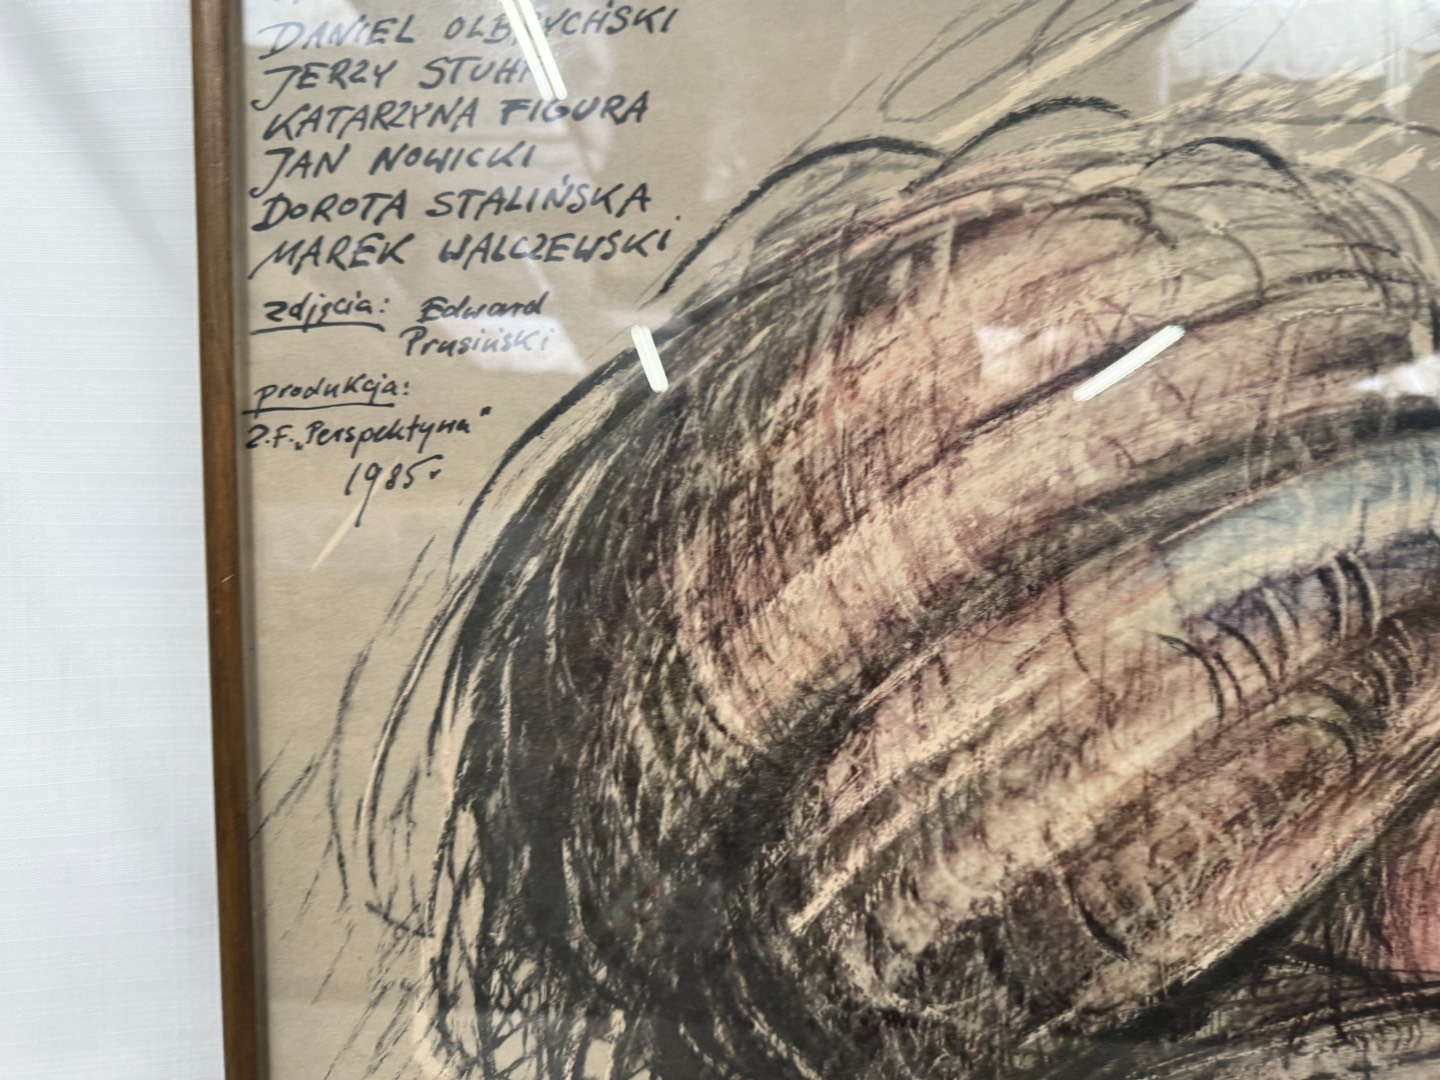 DANIEL OLBRYCHSKI
JERZY STUHR
KATARZYNA FIGURA
JAN NOWICKI
DOROTA STALIŃSKA
MAREK WALCZEWSKI
zdjęcia: Edward
Prusiński
produkcja:
Z.F. „Perspektywa"
1985r